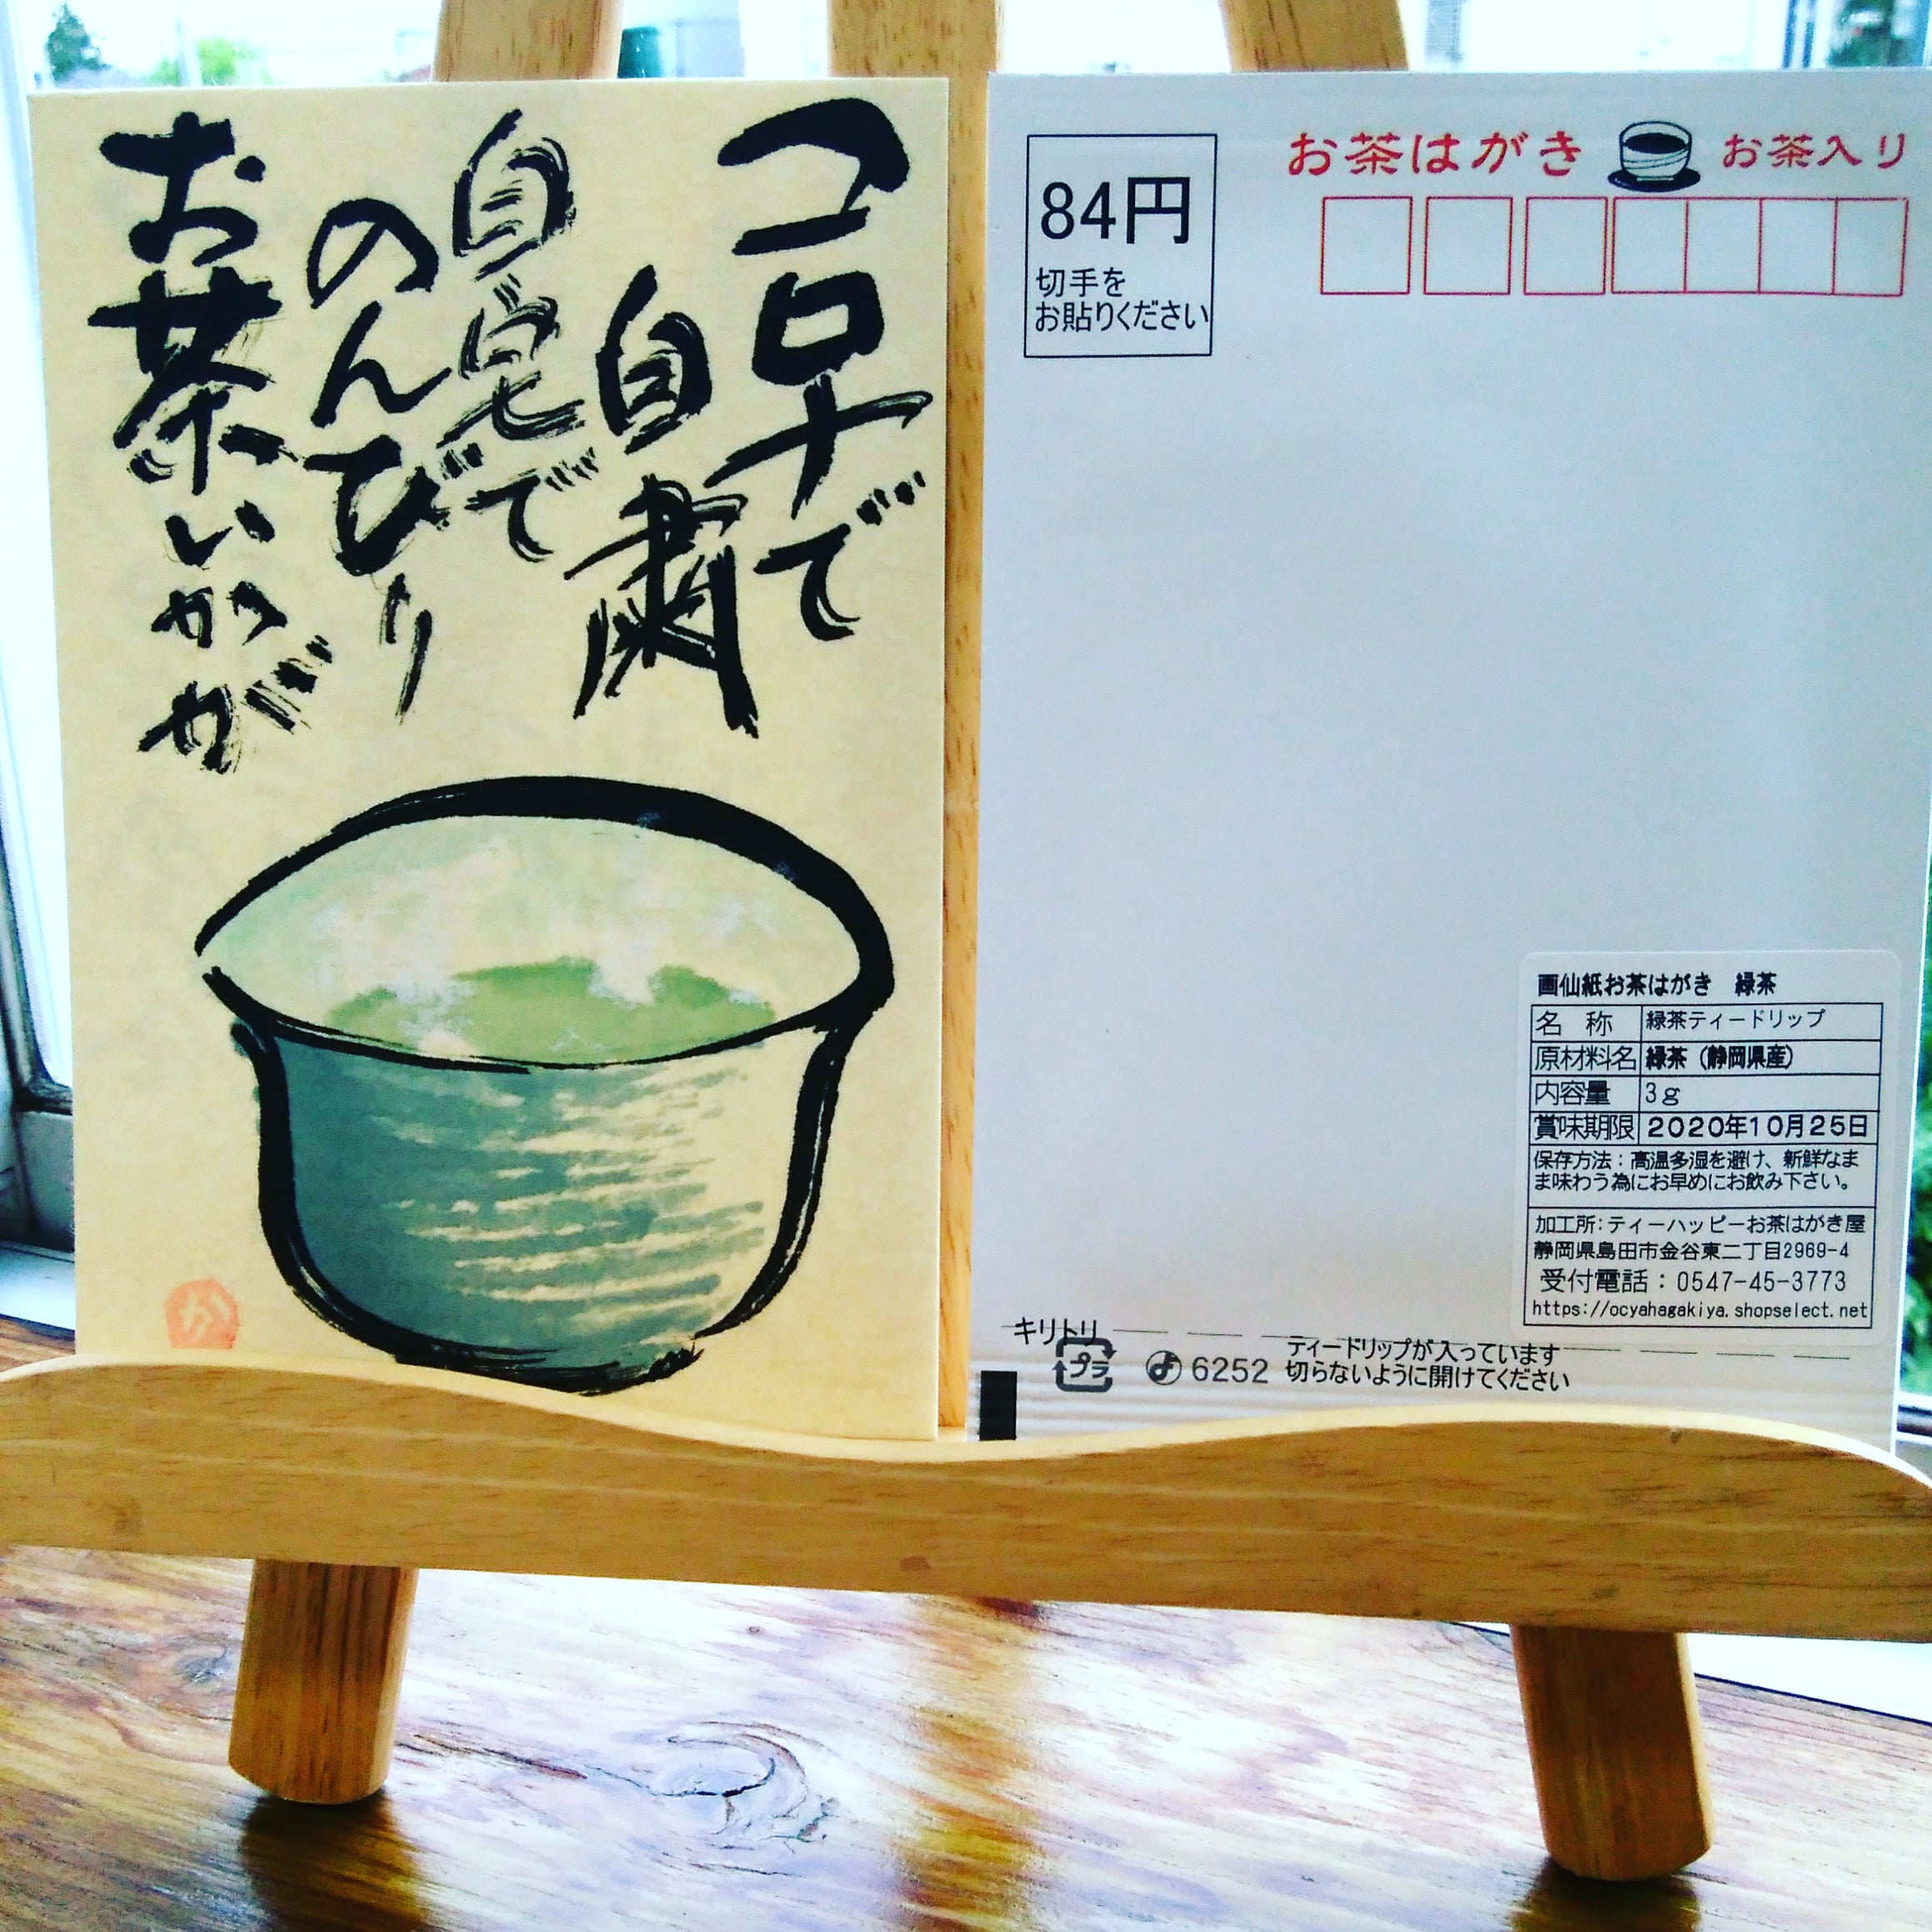 コロナで
自粛
自宅で
のんびり
お茶いかが
か
84円
切手を
お貼りください
お茶はがき お茶入り
画仙紙お茶はがき 緑茶
名 称 緑茶ティードリップ
原材料名 緑茶（静岡県産）
内容量 3g
賞味期限 2020年10月25日
保存方法：高温多湿を避け、新鮮なま
ま味わう為にお早めにお飲み下さい。
加工所：ティーハッピーお茶はがき屋
静岡県島田市金谷東二丁目2969-4
受付電話：0547-45-3773
https://ocyahagakiya.shopselect.net
キリトリ
プラ
6252
ティードリップが入っています
切らないように開けてください